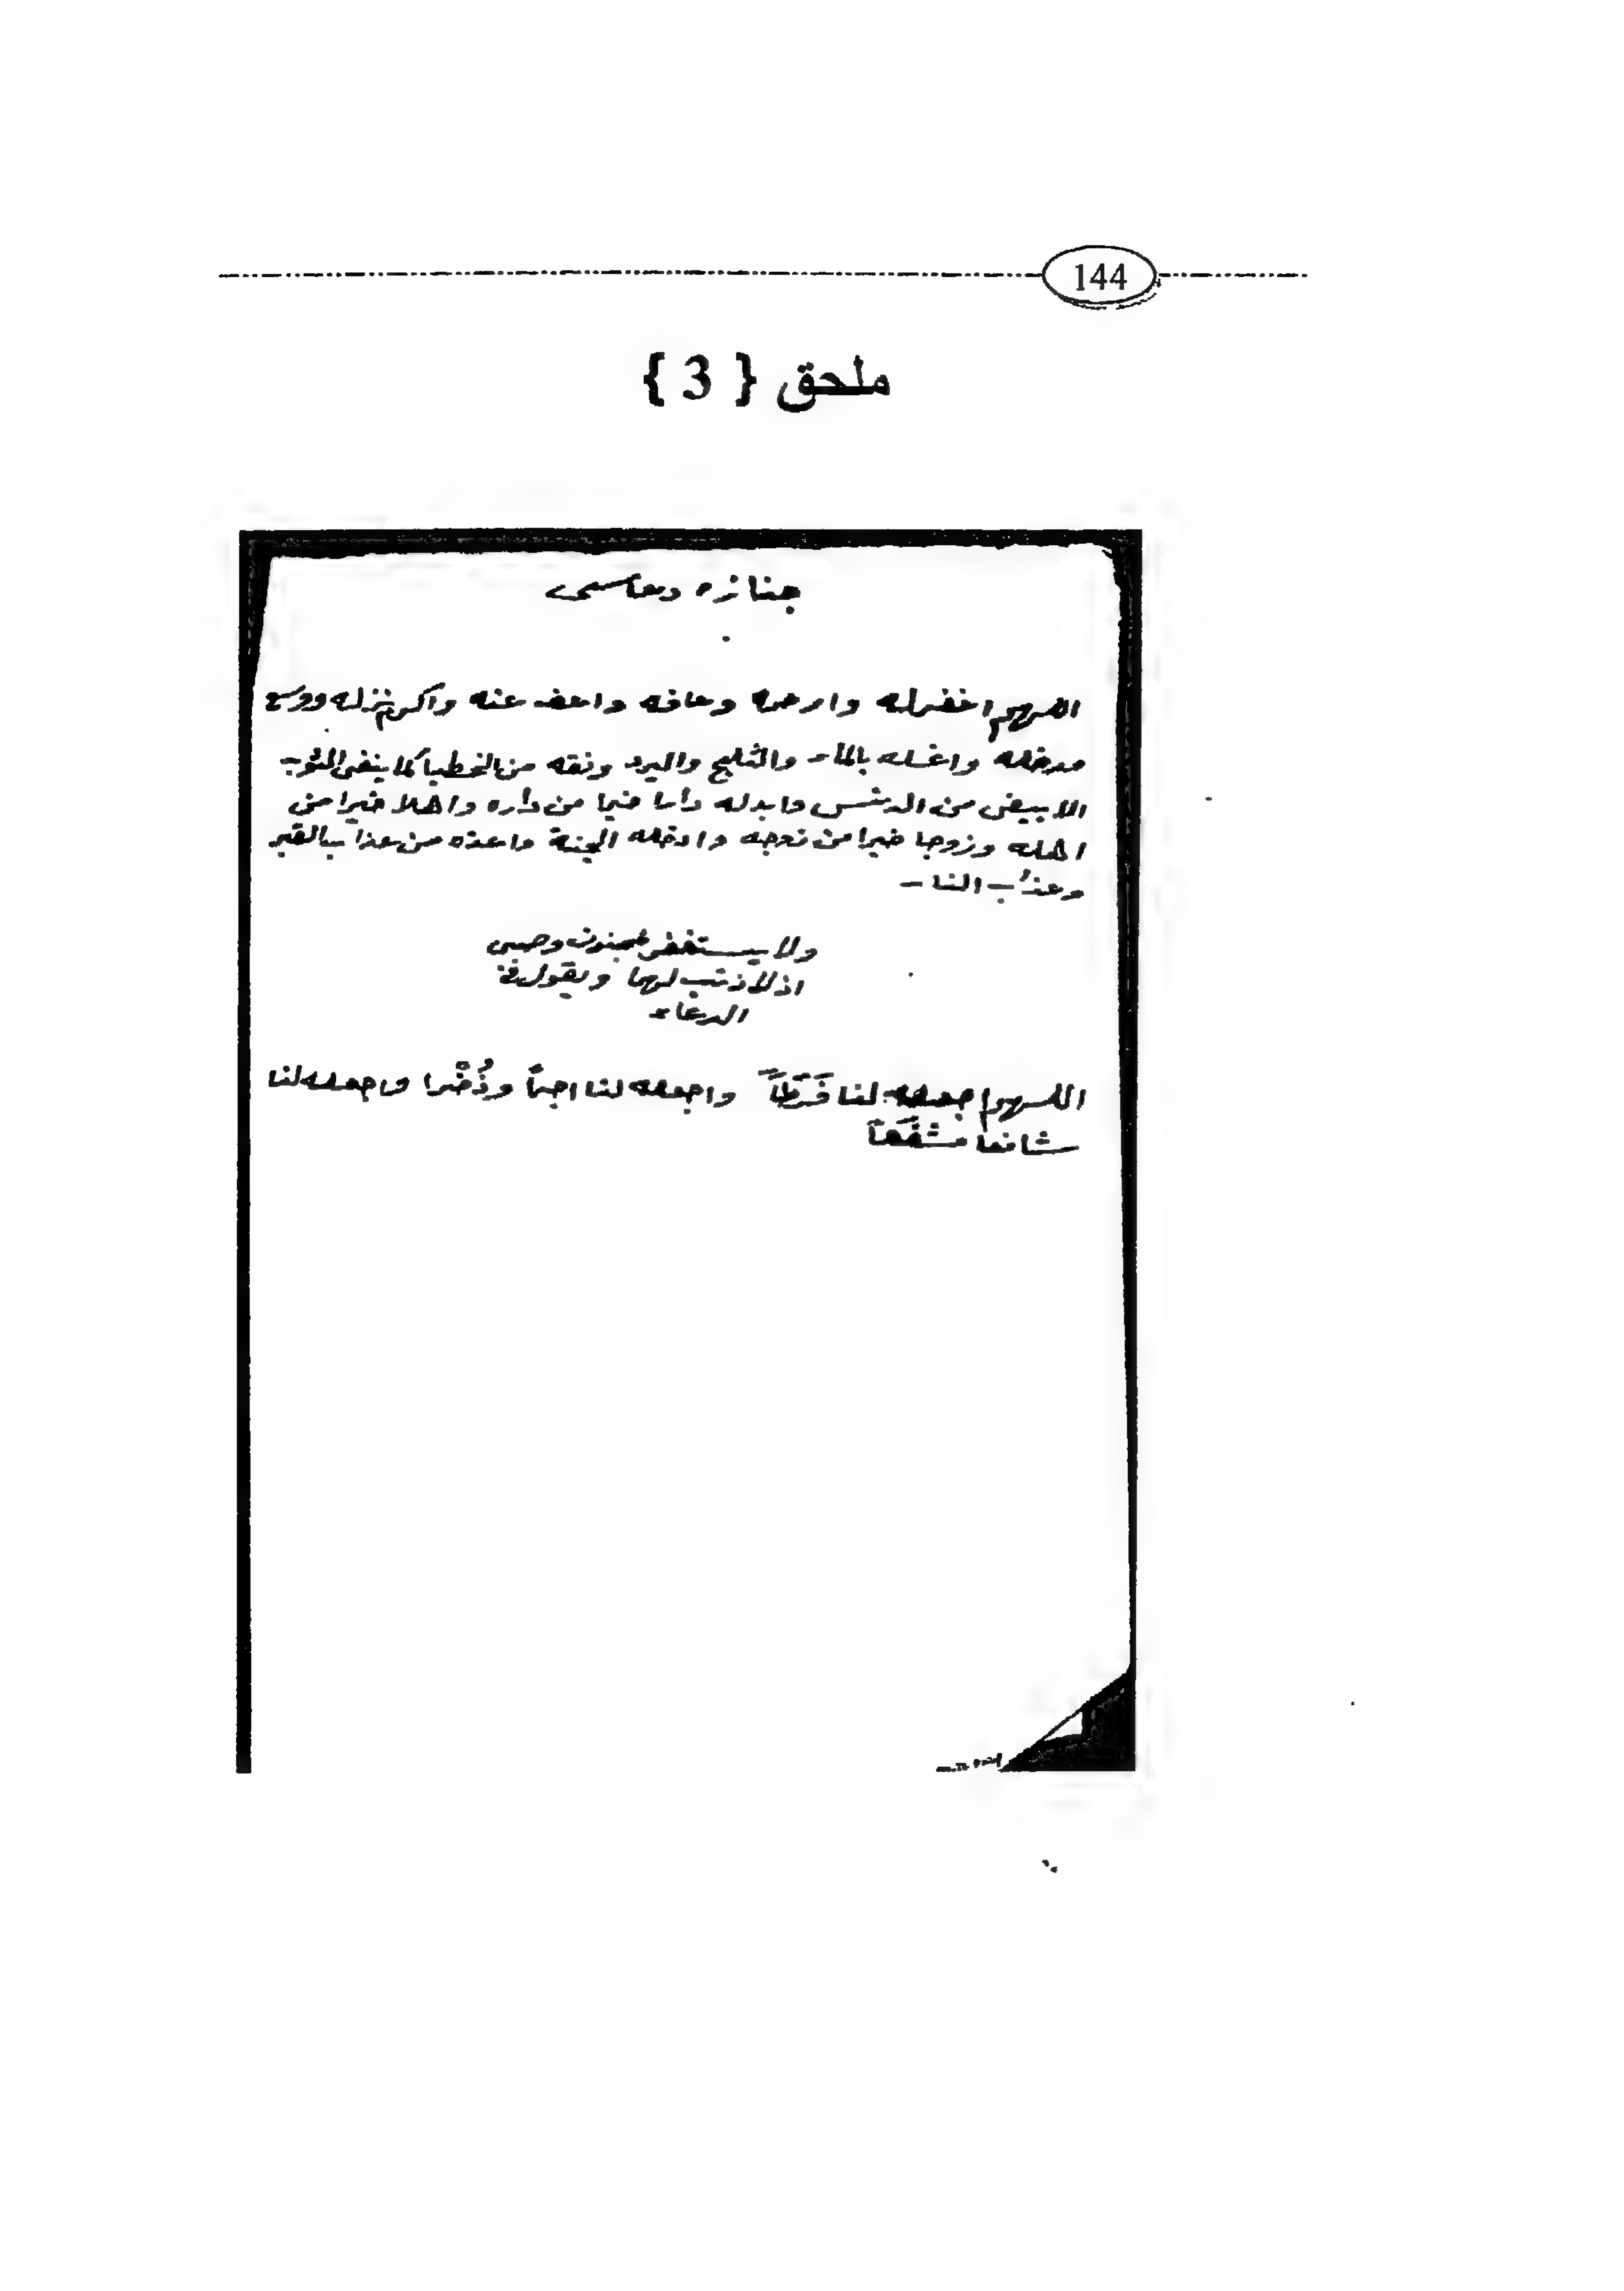 144
ملحق { 3 }
جنازه دعاسى
اللهم اغفرله وارحمه وعافه واعف عنه واكرم نزله ووسع
مدخله واغسله بالماء والثلج والبرد ونقه من الخطيا كما ينقى الثوب
الابيض من الدنس وابدله دارا خيرا من داره واهلا خيرا من
اهله وزوجا خيرا من زوجه وادخله الجنة واعذه من عذاب القبر
وعذاب النار
ولا يستغفر لمجنون وصبى
اذ لا ذنب لهما ويقول فى
الدعاء
اللهم اجعله لنا فَرَطَاً واجعله لنا اجراً وذُخْرا واجعله لنا
شافعا مشفَّعاً